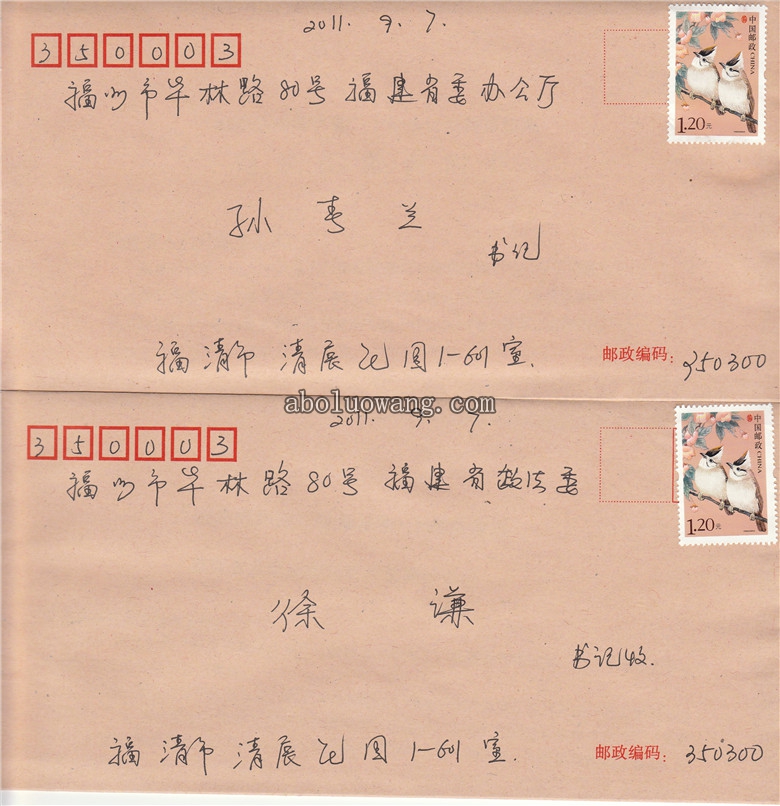 2011. 9. 7.
350003
中国邮政 CHINA
1.20元
福州市华林路80号 福建省委办公厅
孙春兰
书记
福清市 清展花园1-601室.
邮政编码: 350300
aboluowang.com
2011. 9. 7.
350003
中国邮政 CHINA
1.20元
福州市华林路80号 福建省政法委
徐 谦
书记收.
福清市 清展花园1-601室.
邮政编码: 350300